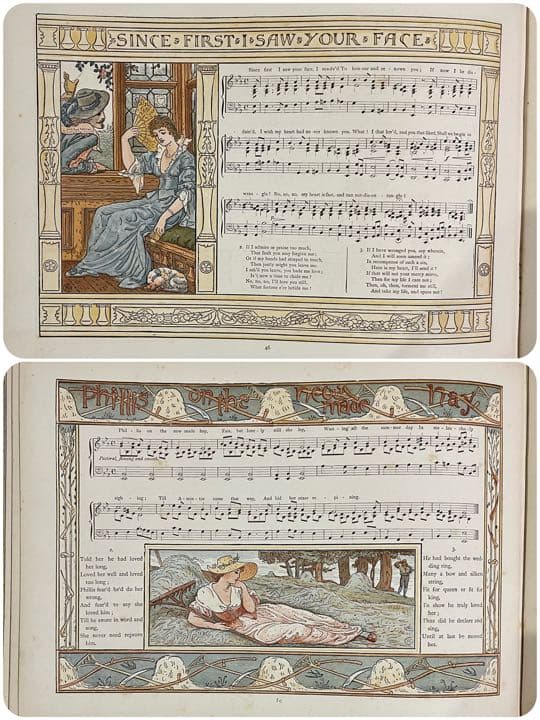 SINCE FIRST I SAW YOUR FACE
Since first I saw your face, I resolv'd To hon-our and re - nown you; If now I be dis-
dain'd, I wish my heart had ne-ver known you. What! I that lov'd, and you that liked, Shall we begin to
wran - gle? No, no, no, my heart is fast, and can not dis-en - tan-gle!
2. If I admire or praise too much,
That fault you may forgive me;
Or if my hands had strayed to touch,
Then justly might you leave me.
I ask'd you leave, you bade me love;
Is't now a time to chide me?
No, no, no, I'll love you still,
What fortune e'er betide me!
3. If I have wronged you, any wherein,
And I will soon amend it;
In recompence of such a sin,
Here is my heart, I'll send it!
If that will not your mercy move,
Then for my life I care not;
Then, oh, then, torment me still,
And take my life, and spare not!
46
Phillis on the new made hay
Phil - lis on the new made hay, Fair, but lone-ly still she lay, Wast-ing all the sum-mer day In me-lan-cho-ly
Pastoral, flowing and smooth.
sigh - ing; Till A-min-tor came that way, And bid her cease re - pi - ning.
2.
Told her he had loved
her long,
Loved her well and loved
too long;
Phillis fear'd he'd do her
wrong,
And fear'd to say she
loved him;
Till he swore in word and
song,
She never need reprove
him.
3.
He had bought the wed-
ding ring,
Many a bow and silken
string,
Fit for queen or fit for
king,
To show he truly loved
her;
Thus did he declare and
sing,
Until at last he moved
her.